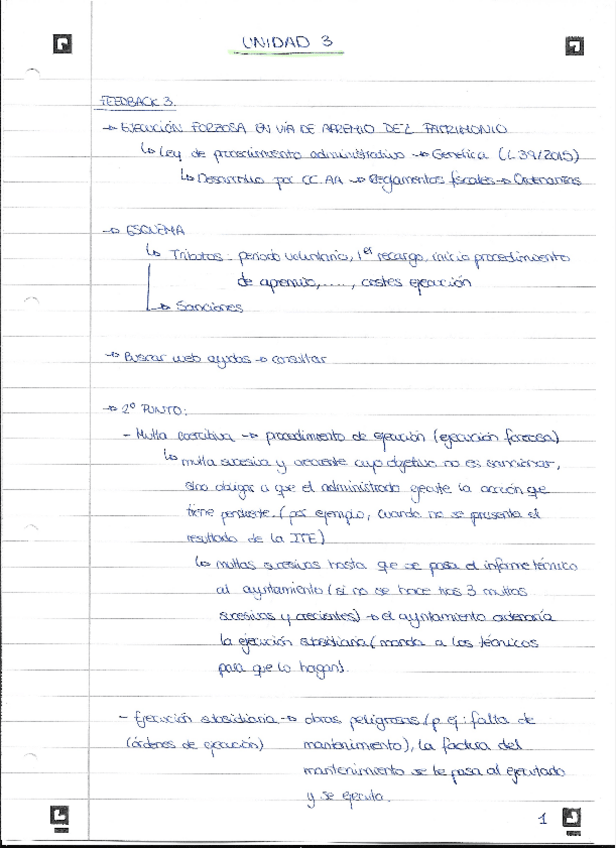 UNIDAD 3
FEEDBACK 3.
→ EJECUCIÓN FORZOSA EN VÍA DE APREMIO DEL PATRIMONIO
↳ Ley de procedimiento administrativo → Genérica (L 39/2015)
↳ Desarrollo por CC.AA → Reglamentos fiscales → Ordenanzas
→ ESQUEMA
↳ Tributos: periodo voluntario, 1er recargo, inicio procedimiento
de apremio, ...., costes ejecución
↳ Sanciones
→ Buscar web ayudas → consultar
→ 2º PUNTO:
- Multa coercitiva → procedimiento de ejecución (ejecución forzosa)
↳ multa sucesiva y creciente cuyo objetivo no es sancionar,
sino obligar a que el administrado ejecute la acción que
tiene pendiente. (por ejemplo, cuando no se presenta el
resultado de la ITE)
↳ multas sucesivas hasta que se pasa el informe técnico
al ayuntamiento (si no se hace tras 3 multas
sucesivas y crecientes) → el ayuntamiento ordenaría
la ejecución subsidiaria (manda a los técnicos
para que lo hagan).
- Ejecución subsidiaria → obras peligrosas (p ej: falta de
(órdenes de ejecución) mantenimiento), la factura del
mantenimiento se le pasa al ejecutado
y se ejecuta.
1